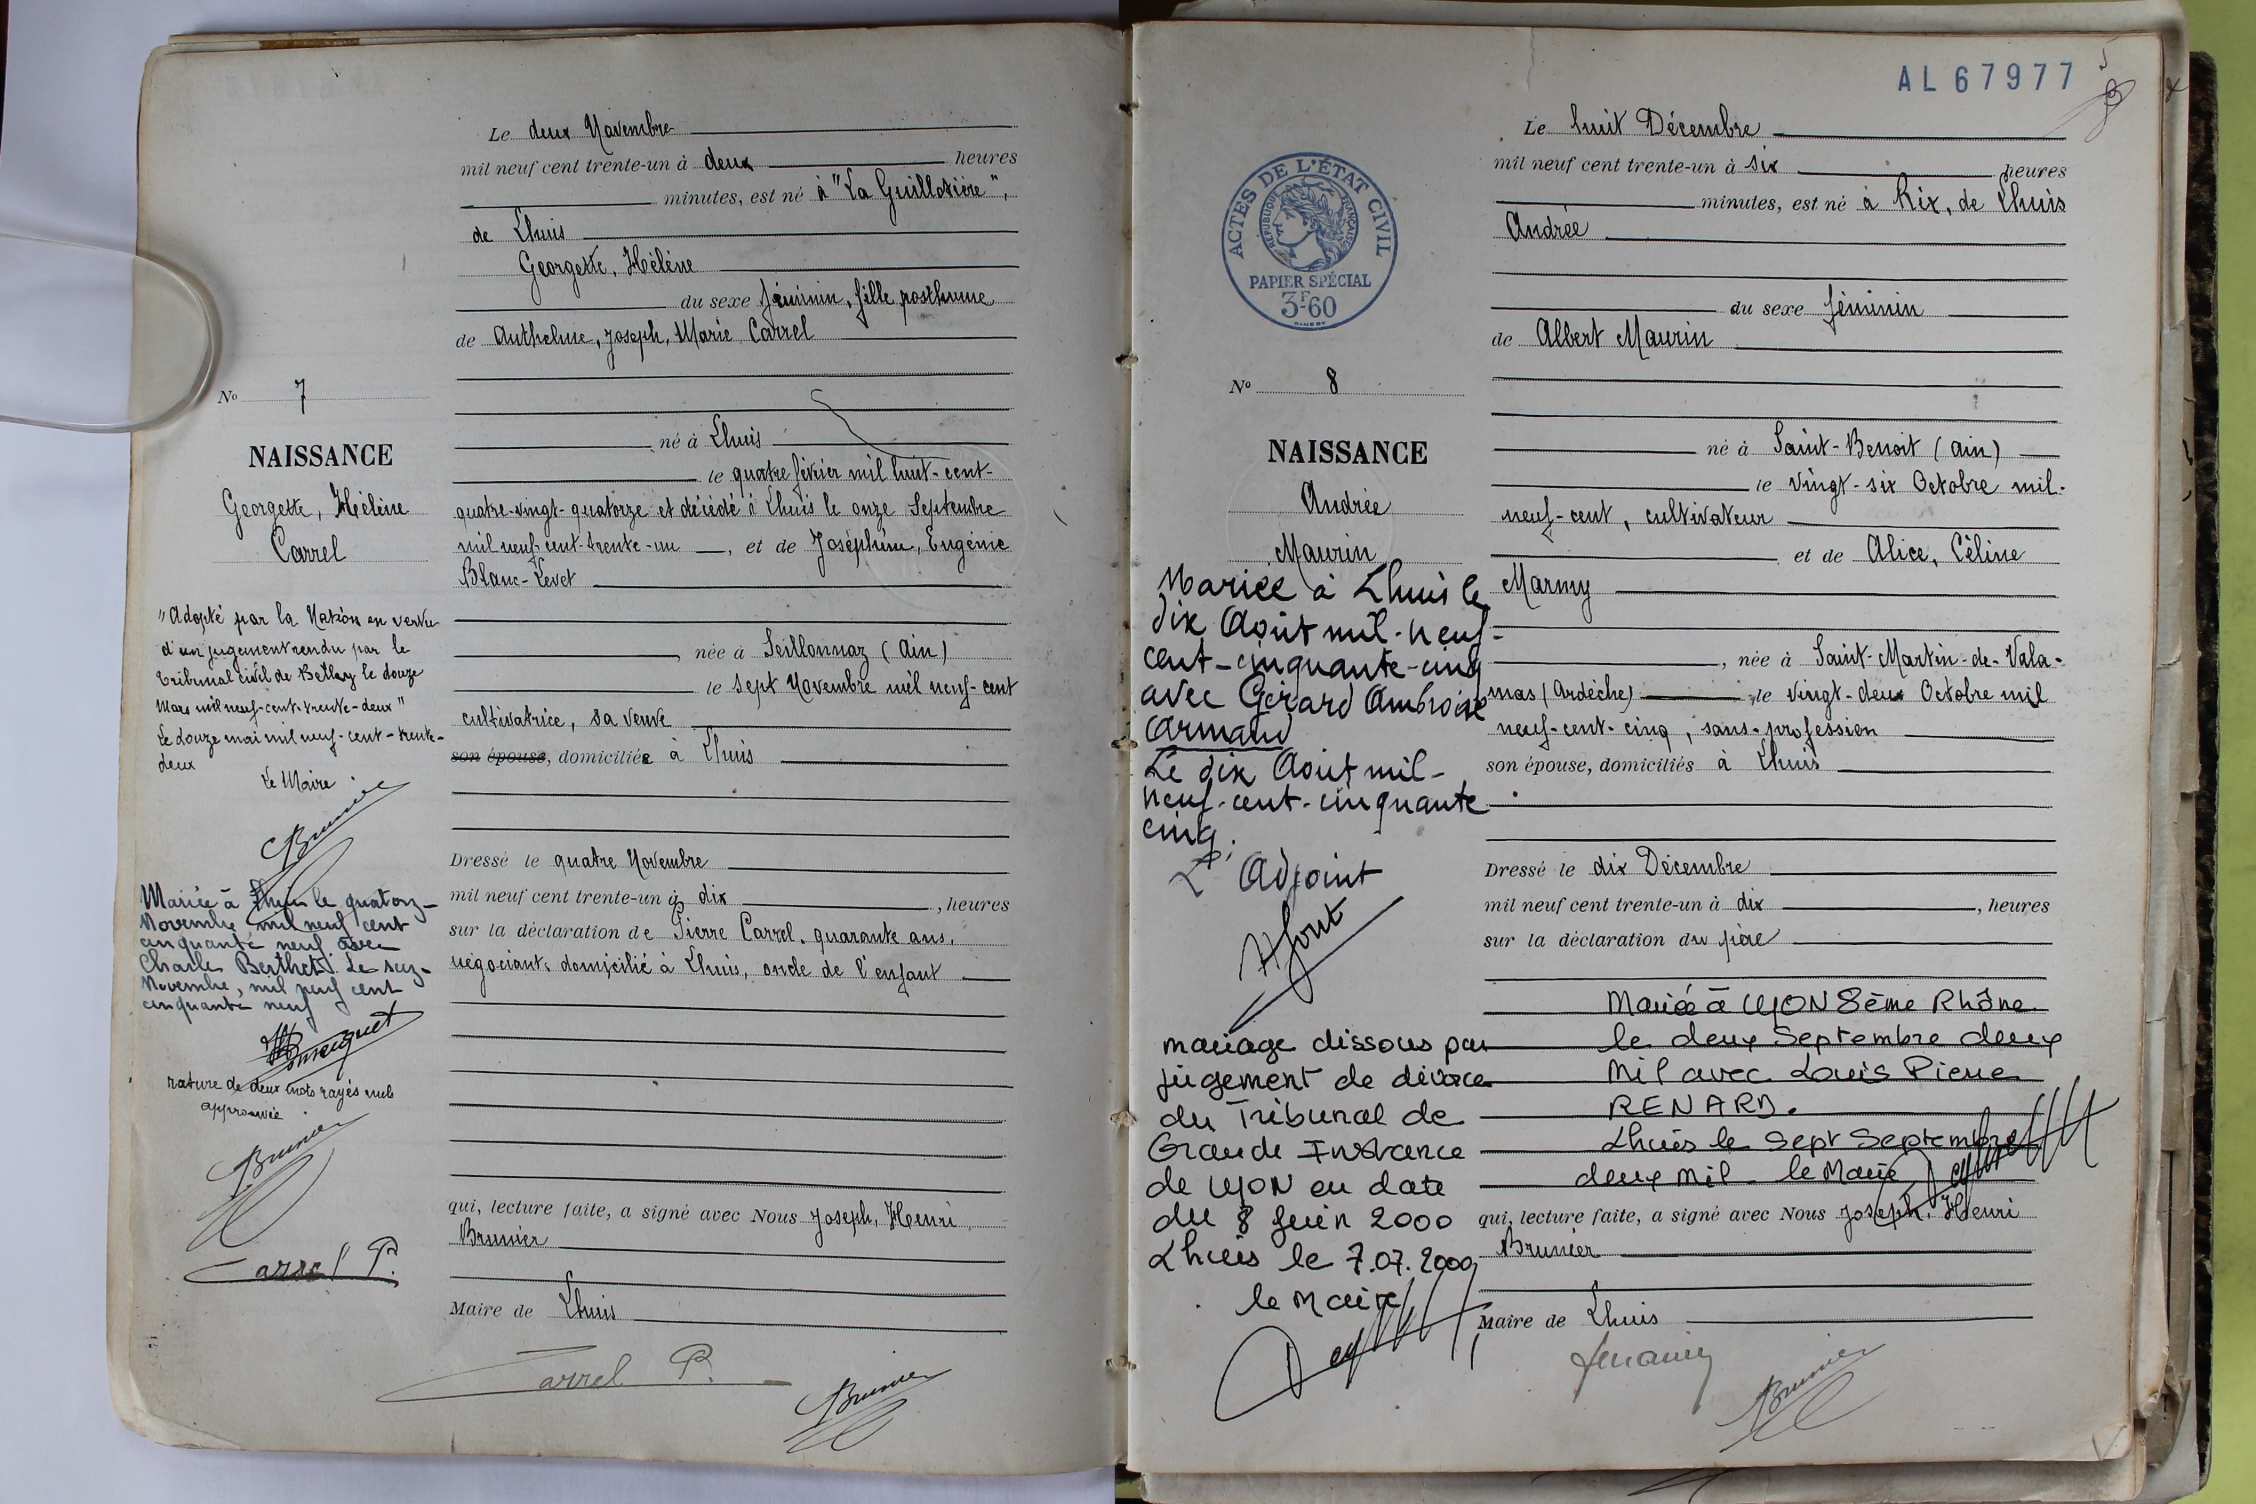 Le deux Novembre
mil neuf cent trente-un à deux heures
minutes, est né à "La Guillotière",
de Lhuis
Georgette, Hélène
du sexe féminin, fille posthume
de Anthelme, Joseph, Marie Carrel
né à Lhuis
le quatre février mil huit-cent-
quatre-vingt-quatorze et décédé à Lhuis le onze Septembre
mil neuf cent-trente-un, et de Joséphine, Eugénie
Blanc-Levet
née à Seillonnaz (Ain)
le sept Novembre mil neuf-cent
cultivatrice, sa veuve
son épouse, domiciliée à Lhuis
Dressé le quatre Novembre
mil neuf cent trente-un à dix, heures
sur la déclaration de Pierre Carrel, quarante ans,
négociant, domicilié à Lhuis, oncle de l'enfant
qui, lecture faite, a signé avec Nous Joseph, Henri
Brunier
Maire de Lhuis
Carrel P.
Brunier
No 7
NAISSANCE
Georgette, Hélène
Carrel
"Adopté par la Nation en vertu
d'un jugement rendu par le
tribunal civil de Belley le douze
Mars mil neuf-cent-trente-deux"
Le douze mai mil neuf-cent-trente-
deux
Le Maire
Brunier
Mariée à Lhuis le quatorze
Novembre mil neuf cent
cinquante neuf avec
Charles Berthet. Le seize
Novembre, mil neuf cent
cinquante neuf
rature de deux mots rayés nuls
approuvée
Brunier
Carrel P.
AL 67977
ACTES DE L'ÉTAT CIVIL
RÉPUBLIQUE FRANÇAISE
PAPIER SPÉCIAL
3F60
Le huit Décembre
mil neuf cent trente-un à six heures
minutes, est né à Rix, de Lhuis
Andrée
du sexe féminin
de Albert Maurin
né à Saint-Benoit (Ain)
le vingt-six Octobre mil-
neuf-cent, cultivateur
et de Alice, Céline
Marmy
née à Saint-Martin-de-Vala-
mas (Ardèche) le vingt-deux Octobre mil
neuf-cent-cinq, sans-profession
son épouse, domiciliés à Lhuis
Dressé le dix Décembre
mil neuf cent trente-un à dix, heures
sur la déclaration du père
Mariée à LYON 8ème Rhône
le deux Septembre deux
mil avec Louis Pierre
RENARD.
Lhuis le sept Septembre
deux mil - le Maire
qui, lecture faite, a signé avec Nous Joseph, Henri
Brunier
Maire de Lhuis
Brunier
No 8
NAISSANCE
Andrée
Maurin
Mariée à Lhuis le
dix Août mil-neuf-
cent-cinquante-cinq
avec Gérard Ambroise
Armand
Le dix Août mil-
neuf-cent-cinquante
cinq.
L'Adjoint
mariage dissous par
jugement de divorce
du Tribunal de
Grande Instance
de LYON en date
du 8 Juin 2000
Lhuis le 7.07.2000
le Maire